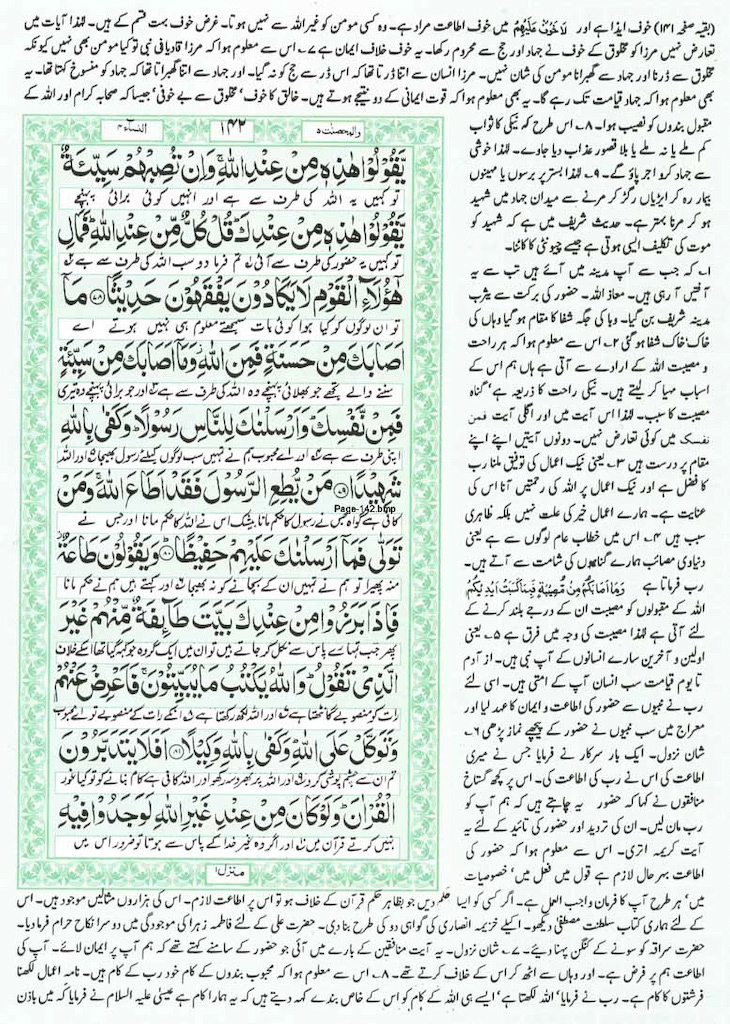 (بقیہ صفحہ ۱۴۱) خوف ایذا ہے اور لَا خَوْفٌ عَلَیْھِمْ میں خوف اطاعت مراد ہے۔ وہ کسی مومن کو غیر اللہ سے نہیں ہوتا۔ غرض خوف بہت قسم کے ہیں۔ لہٰذا آیات میں
تعارض نہیں مرزا کو مخلوق کے خوف نے جہاد اور حج سے محروم رکھا۔ یہ خوف خلاف ایمان ہے ۷۔ اس سے معلوم ہوا کہ مرزا قادیانی نبی تو کیا مومن بھی نہیں کیونکہ
مخلوق سے ڈرنا اور جہاد سے گھبرانا مومن کی شان نہیں۔ مرزا انسان سے اتنا ڈرتا تھا کہ اس ڈر سے حج کو نہ گیا۔ اور جہاد سے اتنا گھبراتا تھا کہ جہاد کو منسوخ کہتا تھا۔ یہ
بھی معلوم ہوا کہ جہاد قیامت تک رہے گا۔ یہ بھی معلوم ہوا کہ قوت ایمانی کے دو نتیجے ہوتے ہیں۔ خالق کا خوف، مخلوق سے بے خوفی، جیسا کہ صحابہ کرام اور اللہ کے
مقبول بندوں کو نصیب ہوا۔ ۸۔ اس طرح کہ نیکی کا ثواب
کم ملے یا نہ ملے یا بلا قصور عذاب دیا جاوے۔ لہٰذا خوشی
سے جہاد کرو اجر پاؤ گے۔ ۹۔ لہٰذا بستر پر برسوں یا مہینوں
بیمار رہ کر ایڑیاں رگڑ کر مرنے سے میدان جہاد میں شہید
ہو کر مرنا بہتر ہے۔ حدیث شریف میں ہے کہ شہید کو
موت کی تکلیف ایسی ہوتی ہے جیسے چیونٹی کا کاٹنا۔
۱۔ کہ جب سے آپ مدینہ میں آئے ہیں تب سے یہ
آفتیں آ رہی ہیں۔ معاذ اللہ۔ حضور کی برکت سے یثرب
مدینہ شریف بن گیا۔ وبا کی جگہ شفا کا مقام ہو گیا وہاں کی
خاک خاک شفا ہو گئی ۲۔ اس سے معلوم ہوا کہ ہر راحت
و مصیبت اللہ کے ارادے سے آتی ہے ہاں ہم اس کے
اسباب مہیا کر لیتے ہیں۔ نیکی راحت کا ذریعہ ہے، گناہ
مصیبت کا سبب۔ لہٰذا اس آیت میں اور اگلی آیت فمن
نفسک میں کوئی تعارض نہیں۔ دونوں آیتیں اپنے اپنے
مقام پر درست ہیں ۳۔ یعنی نیک اعمال کی توفیق ملنا رب
کا فضل ہے اور نیک اعمال پر اللہ کی رحمتیں آنا اس کی
عنایت ہے۔ ہمارے اعمال خیر کی علت نہیں بلکہ ظاہری
سبب ہیں ۴۔ اس میں خطاب عام لوگوں سے ہے یعنی
دنیاوی مصائب ہمارے گناہوں کی شامت سے آتے ہیں۔
رب فرماتا ہے وَمَا اَصَابَكُمْ مِنْ مُّصِیْبَةٍ فَبِمَا كَسَبَتْ اَیْدِیْكُمْ
اللہ کے مقبولوں کو مصیبت ان کے درجے بلند کرنے کے
لئے آتی ہے لہٰذا مصیبت کی وجہ میں فرق ہے ۵۔ یعنی
اولین و آخرین سارے انسانوں کے آپ نبی ہیں۔ از آدم
تا یوم قیامت سب انسان آپ کے امتی ہیں۔ اسی لئے
رب نے نبیوں سے حضور کی اطاعت و ایمان کا عہد لیا اور
معراج میں سب نبیوں نے حضور کے پیچھے نماز پڑھی ۶۔
شان نزول۔ ایک بار سرکار نے فرمایا جس نے میری
اطاعت کی اس نے رب کی اطاعت کی۔ اس پر کچھ گستاخ
منافقوں نے کہا کہ حضور یہ چاہتے ہیں کہ ہم آپ کو
رب مان لیں۔ ان کی تردید اور حضور کی تائید کے لئے یہ
آیت کریمہ اتری۔ اس سے معلوم ہوا کہ حضور کی
اطاعت بہرحال لازم ہے قول میں فعل میں، خصوصیات
والمحصنٰت ۵
۱۴۲
النسآء ۴
یَّقُوْلُوْا هٰذِهٖ مِنْ عِنْدِ اللّٰهِ ۚ وَاِنْ تُصِبْهُمْ سَیِّئَةٌ
تو کہیں یہ اللہ کی طرف سے ہے اور انہیں کوئی برائی پہنچے
یَّقُوْلُوْا هٰذِهٖ مِنْ عِنْدِكَ ؕ قُلْ كُلٌّ مِّنْ عِنْدِ اللّٰهِ ؕ فَمَالِ
تو کہیں یہ حضور کی طرف سے آئی تم فرما دو سب اللہ کی طرف سے ہے
هٰۤؤُلَآءِ الْقَوْمِ لَا یَكَادُوْنَ یَفْقَهُوْنَ حَدِیْثًا ﴿۷۸﴾ مَاۤ
تو ان لوگوں کو کیا ہوا کوئی بات سمجھتے معلوم ہی نہیں ہوتے اے
اَصَابَكَ مِنْ حَسَنَةٍ فَمِنَ اللّٰهِ ؗ وَمَاۤ اَصَابَكَ مِنْ سَیِّئَةٍ
سننے والے تجھے جو بھلائی پہنچے وہ اللہ کی طرف سے ہے اور جو برائی پہنچے وہ تیری
فَمِنْ نَّفْسِكَ ؕ وَاَرْسَلْنٰكَ لِلنَّاسِ رَسُوْلًا ؕ وَكَفٰی بِاللّٰهِ
اپنی طرف سے ہے اور اے محبوب ہم نے تمہیں سب لوگوں کیلئے رسول بھیجا اور اللہ
شَهِیْدًا ﴿۷۹﴾ مَنْ یُّطِعِ الرَّسُوْلَ فَقَدْ اَطَاعَ اللّٰهَ ۚ وَمَنْ
کافی ہے گواہ جس نے رسول کا حکم مانا بیشک اس نے اللہ کا حکم مانا اور جس نے
Page-142.bmp
تَوَلّٰی فَمَاۤ اَرْسَلْنٰكَ عَلَیْهِمْ حَفِیْظًا ﴿۸۰﴾ وَیَقُوْلُوْنَ طَاعَةٌ ؗ
منہ پھیرا تو ہم نے تمہیں ان کے بچانے کو نہ بھیجا اور کہتے ہیں ہم نے حکم مانا
فَاِذَا بَرَزُوْا مِنْ عِنْدِكَ بَیَّتَ طَآىِٕفَةٌ مِّنْهُمْ غَیْرَ
پھر جب تمہارے پاس سے نکل کر جاتے ہیں تو ان میں ایک گروہ جو کہہ گیا تھا اسکے خلاف
الَّذِیْ تَقُوْلُ ؕ وَاللّٰهُ یَكْتُبُ مَا یُبَیِّتُوْنَ ۚ فَاَعْرِضْ عَنْهُمْ
رات کو منصوبے گانٹھتا ہے اور اللہ لکھ رکھتا ہے انکے رات کے منصوبے تو اے محبوب
وَتَوَكَّلْ عَلَی اللّٰهِ ؕ وَكَفٰی بِاللّٰهِ وَكِیْلًا ﴿۸۱﴾ اَفَلَا یَتَدَبَّرُوْنَ
تم ان سے چشم پوشی کرو اور اللہ پر بھروسہ رکھو اور اللہ کافی ہے کام بنانے کو تو کیا غور
الْقُرْاٰنَ ؕ وَلَوْ كَانَ مِنْ عِنْدِ غَیْرِ اللّٰهِ لَوَجَدُوْا فِیْهِ
نہیں کرتے قرآن میں اور اگر وہ غیر خدا کے پاس سے ہوتا تو ضرور اس میں
منزل ۱
میں، ہر طرح آپ کا فرمان واجب العمل ہے۔ اگر کسی کو ایسا حکم دیں جو بظاہر حکم قرآن کے خلاف ہو تو اس پر اطاعت لازم۔ اس کی ہزاروں مثالیں موجود ہیں۔ اس
کے لئے ہماری کتاب سلطنت مصطفیٰ دیکھو۔ اکیلے خزیمہ انصاری کی گواہی دو کی طرح بنا دی۔ حضرت علی کے لئے فاطمہ زہرا کی موجودگی میں دوسرا نکاح حرام فرما دیا۔
حضرت سراقہ کو سونے کے کنگن پہنا دیئے۔ ۷۔ شان نزول۔ یہ آیت منافقین کے بارے میں آئی جو حضور کے سامنے کہتے تھے کہ ہم آپ پر ایمان لائے۔ آپ کی
اطاعت ہم پر فرض ہے۔ اور وہاں سے اٹھ کر اس کے خلاف کرتے تھے۔ ۸۔ اس سے معلوم ہوا کہ محبوب بندوں کے کام خود رب کے کام ہیں۔ نامہ اعمال لکھنا
فرشتوں کا کام ہے۔ رب نے فرمایا، اللہ لکھتا ہے، ایسے ہی اللہ کے کام کو اس کے خاص بندے کہہ دیتے ہیں کہ یہ ہمارا کام ہے عیسیٰ علیہ السلام نے فرمایا کہ میں باذن